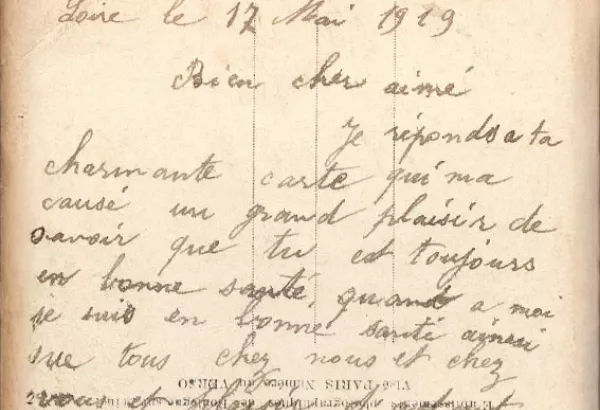 Loire le 17 Mai 1919
Bien cher aimé
Je réponds a ta
charmante carte qui ma
causé un grand plaisir de
savoir que tu est toujours
en bonne santé, quand a moi
je suis en bonne santé ainsi
que tous chez nous et chez
VISÉ PARIS Numéro au VERSO
vous et